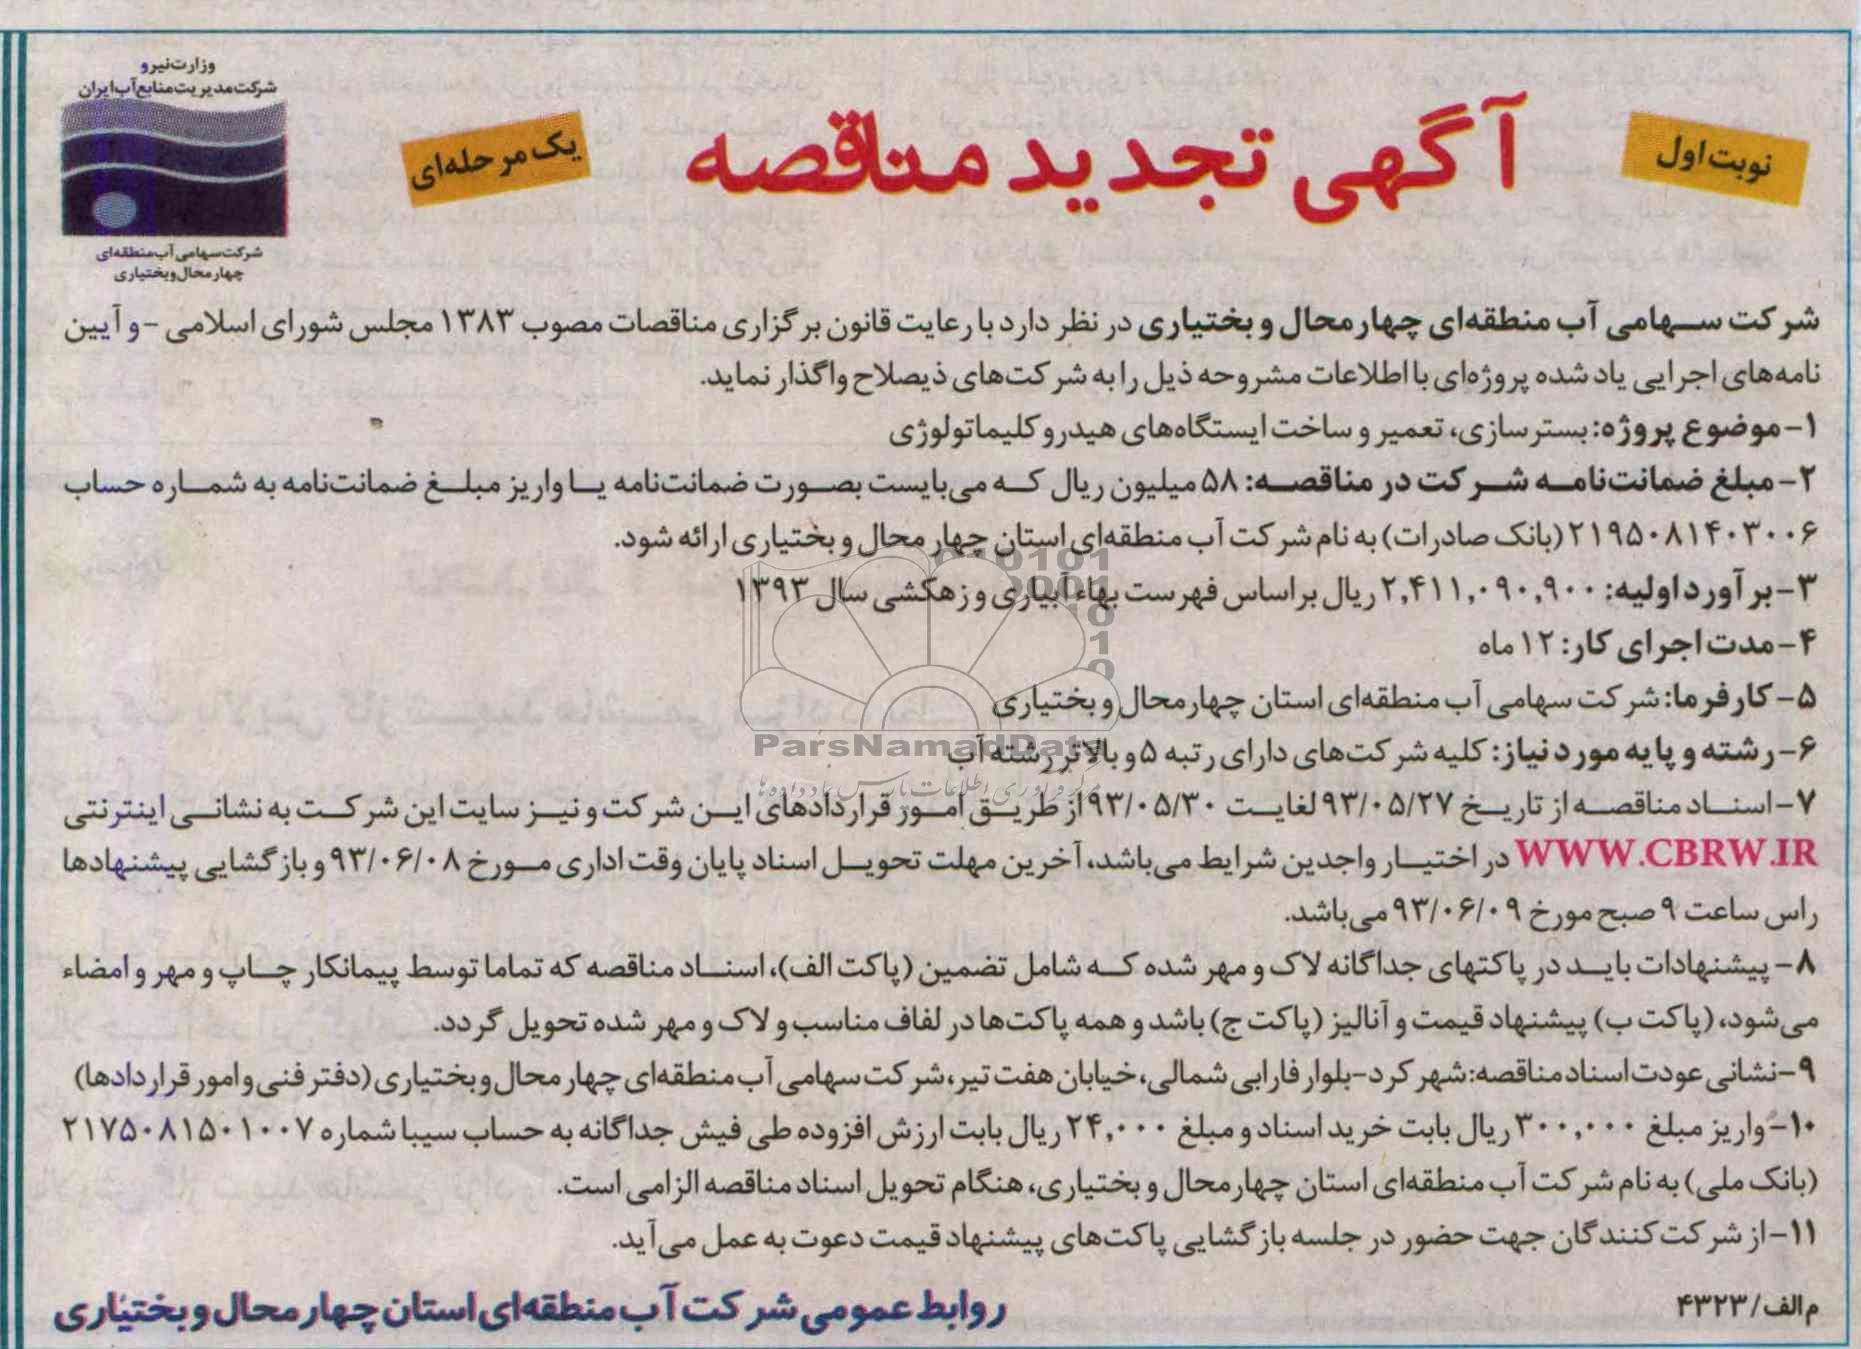 وزارت نیرو
شرکت مدیریت منابع آب ایران
شرکت سهامی آب منطقه‌ای
چهارمحال و بختیاری
نوبت اول
آگهی تجدید مناقصه
یک مرحله‌ای
شرکت سهامی آب منطقه‌ای چهارمحال و بختیاری در نظر دارد با رعایت قانون برگزاری مناقصات مصوب ۱۳۸۳ مجلس شورای اسلامی - و آیین
نامه‌های اجرایی یاد شده پروژه‌ای با اطلاعات مشروحه ذیل را به شرکت‌های ذیصلاح واگذار نماید.
۱- موضوع پروژه: بسترسازی، تعمیر و ساخت ایستگاه‌های هیدروکلیماتولوژی
۲- مبلغ ضمانت‌نامه شرکت در مناقصه: ۵۸ میلیون ریال که می‌بایست بصورت ضمانت‌نامه یا واریز مبلغ ضمانت‌نامه به شماره حساب
۲۱۹۵۰۸۱۴۰۳۰۰۶ (بانک صادرات) به نام شرکت آب منطقه‌ای استان چهار محال و بختیاری ارائه شود.
۳- برآورد اولیه: ۲,۴۱۱,۰۹۰,۹۰۰ ریال براساس فهرست بهاء آبیاری و زهکشی سال ۱۳۹۳
۴- مدت اجرای کار: ۱۲ ماه
۵- کارفرما: شرکت سهامی آب منطقه‌ای استان چهارمحال و بختیاری
۶- رشته و پایه مورد نیاز: کلیه شرکت‌های دارای رتبه ۵ و بالاتر رشته آب
۷- اسناد مناقصه از تاریخ ۹۳/۰۵/۲۷ لغایت ۹۳/۰۵/۳۰ از طریق امور قراردادهای این شرکت و نیز سایت این شرکت به نشانی اینترنتی
WWW.CBRW.IR در اختیار واجدین شرایط می‌باشد، آخرین مهلت تحویل اسناد پایان وقت اداری مورخ ۹۳/۰۶/۰۸ و بازگشایی پیشنهادها
راس ساعت ۹ صبح مورخ ۹۳/۰۶/۰۹ می‌باشد.
۸- پیشنهادات باید در پاکتهای جداگانه لاک و مهر شده که شامل تضمین (پاکت الف)، اسناد مناقصه که تماما توسط پیمانکار چاپ و مهر و امضاء
می‌شود، (پاکت ب) پیشنهاد قیمت و آنالیز (پاکت ج) باشد و همه پاکت‌ها در لفاف مناسب و لاک و مهر شده تحویل گردد.
۹- نشانی عودت اسناد مناقصه: شهرکرد- بلوار فارابی شمالی، خیابان هفت تیر، شرکت سهامی آب منطقه‌ای چهارمحال و بختیاری (دفتر فنی و امور قراردادها)
۱۰- واریز مبلغ ۳۰۰,۰۰۰ ریال بابت خرید اسناد و مبلغ ۲۴,۰۰۰ ریال بابت ارزش افزوده طی فیش جداگانه به حساب سیبا شماره ۲۱۷۵۰۸۱۵۰۱۰۰۷
(بانک ملی) به نام شرکت آب منطقه‌ای استان چهارمحال و بختیاری، هنگام تحویل اسناد مناقصه الزامی است.
۱۱- از شرکت‌کنندگان جهت حضور در جلسه بازگشایی پاکت‌های پیشنهاد قیمت دعوت به عمل می‌آید.
م الف/ ۴۳۲۳
روابط عمومی شرکت آب منطقه‌ای استان چهارمحال و بختیاری
ParsNamadData